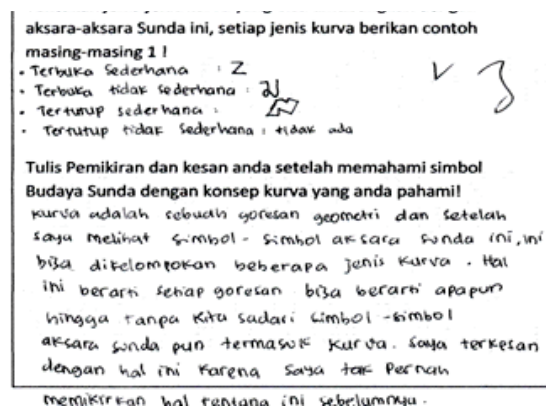 aksara-aksara Sunda ini, setiap jenis kurva berikan contoh
masing-masing 1 !
• Terbuka Sederhana : Z
• Terbuka tidak sederhana :
• Tertutup sederhana :
• Tertutup tidak sederhana : tidak ada
Tulis Pemikiran dan kesan anda setelah memahami simbol
Budaya Sunda dengan konsep kurva yang anda pahami!
kurva adalah sebuah goresan geometri dan setelah
saya melihat simbol - simbol aksara sunda ini, ini
bisa dikelompokan beberapa jenis kurva . Hal
ini berarti setiap goresan bisa berarti apapun
hingga tanpa kita sadari simbol - simbol
aksara sunda pun termasuk kurva. saya terkesan
dengan hal ini karena saya tak pernah
memikirkan hal tentang ini sebelumnya.